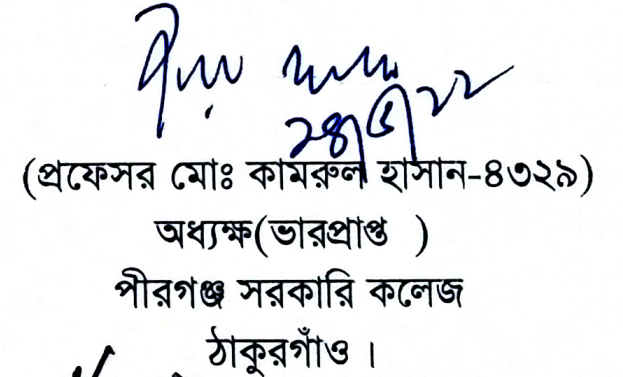 ২৪/৫/২২
(প্রফেসর মোঃ কামরুল হাসান-৪৩২৯)
অধ্যক্ষ(ভারপ্রাপ্ত )
পীরগঞ্জ সরকারি কলেজ
ঠাকুরগাঁও ।